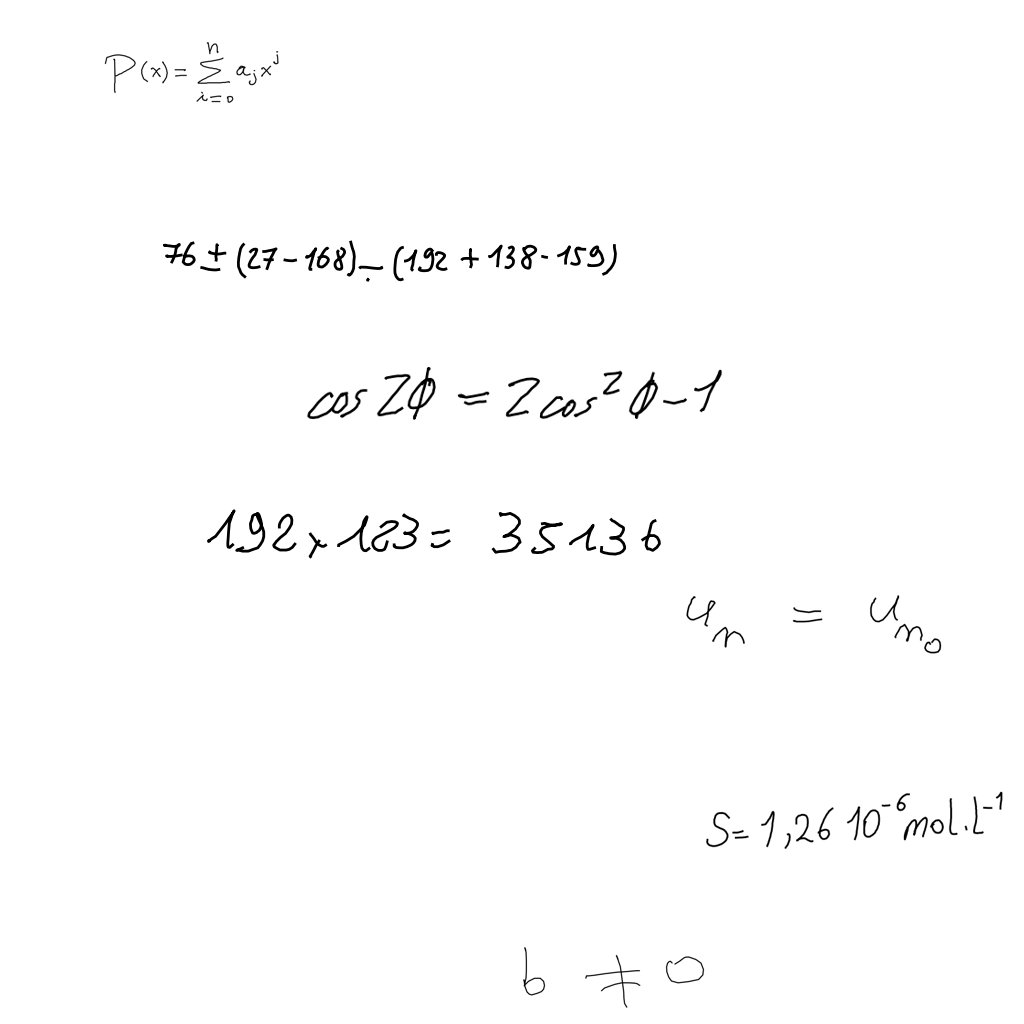 P(x) = \sum_{i=0}^{n} a_j x^j
76 ± (27 - 168) ÷ (192 + 138 - 159)
cos 2ϕ = 2 cos² ϕ - 1
192 × 183 = 35136
u_n = u_{n_0}
S = 1,26 10⁻⁶ mol.l⁻¹
b ≠ 0